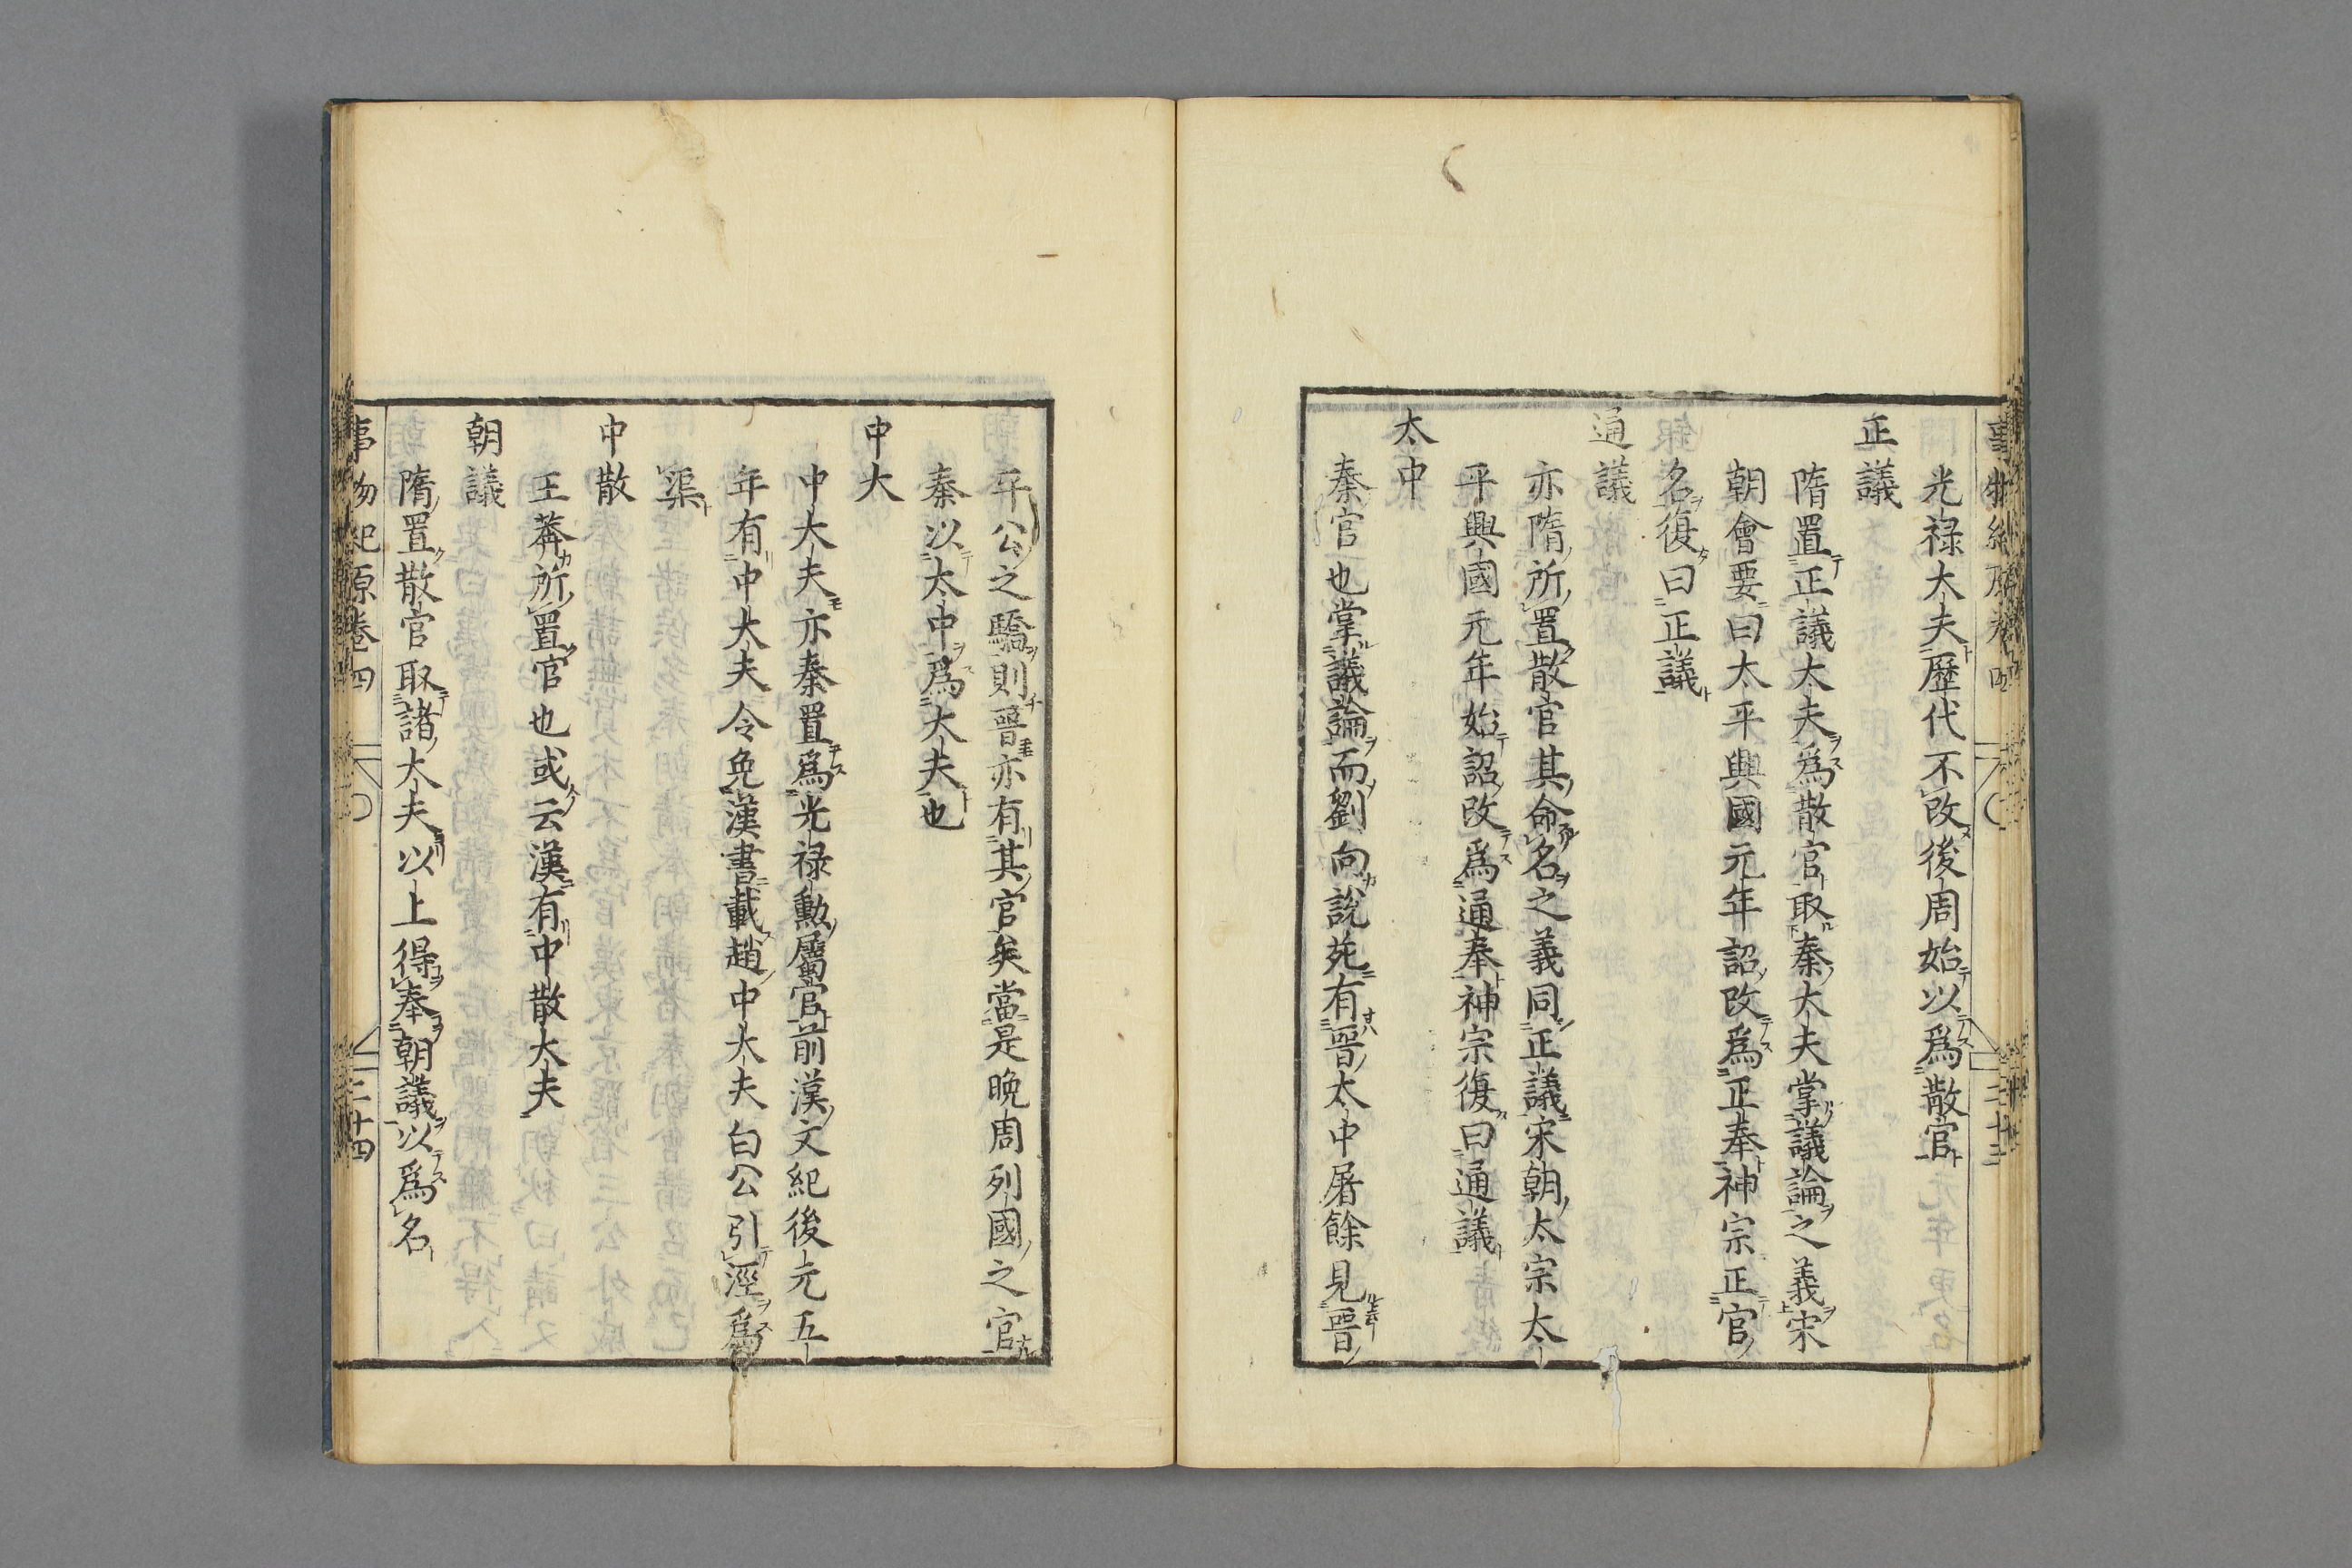 光禄大夫歷代不改後周始以爲散官
正議
隋置正議大夫爲散官取秦大夫掌議論之義宋
朝會要曰太平興國元年詔改爲正奉神宗正官
名復曰正議
通議
亦隋所置散官其命名之義同正議宋朝太宗太
平興國元年始詔改爲通奉神宗復曰通議
太中
秦官也掌議論而劉向說苑有晉太中屠餘見晉
平公之驕則晉亦有其官矣當是晚周列國之官
秦以太中爲大夫也
中大
中大夫亦秦置爲光禄勲屬官前漢文紀後元五
年有中大夫令免漢書載趙中大夫白公引涇爲
渠
中散
王莽所置官也或云漢有中散大夫
朝議
隋置散官取諸大夫以上得奉朝議以爲名
事物紀原卷四 二十四